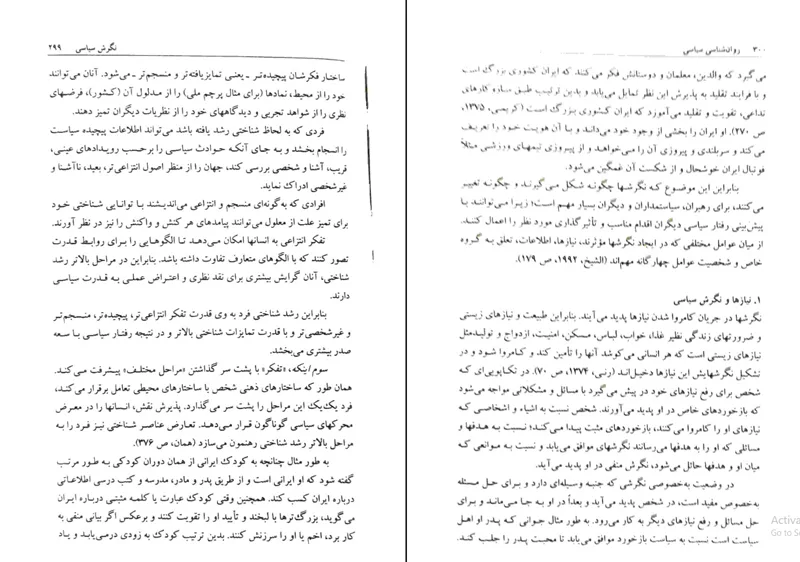 نگرش سیاسی ۲۹۹
ساختار فکرشان پیچیده‌تر ـ یعنی تمایزیافته‌تر و منسجم‌تر ـ می‌شود. آنان می‌توانند
خود را از محیط، نمادها (برای مثال پرچم ملی) را از مدلول آن (کشور)، فرضهای
نظری را از شواهد تجربی و دیدگاههای خود را از نظریات دیگران تمیز دهند.
فردی که به لحاظ شناختی رشد یافته باشد می‌تواند اطلاعات پیچیده سیاست
را انسجام بخشد و به جای آنکه حوادث سیاسی را برحسب رویدادهای عینی،
قریب، آشنا و شخصی بررسی کند، جهان را از منظر اصول انتزاعی‌تر، بعید، ناآشنا و
غیرشخصی ادراک نماید.
افرادی که به‌گونه‌ای منسجم و انتزاعی می‌اندیشند با توانایی شناختی خود
برای تمیز علت از معلول می‌توانند پیامدهای هر کنش و واکنش را نیز در نظر آورند.
تفکر انتزاعی به انسانها امکان می‌دهد تا الگوهایی را برای روابط قدرت
تصور کنند که با الگوهای متعارف تفاوت داشته باشد. بنابراین در مراحل بالاتر رشد
شناختی، آنان گرایش بیشتری برای نقد نظری و اعتراض عملی به قدرت سیاسی
دارند.
بنابراین رشد شناختی فرد به وی قدرت تفکر انتزاعی‌تر، پیچیده‌تر، منسجم‌تر
و غیرشخصی‌تر و با قدرت تمایزات شناختی بالاتر و در نتیجه رفتار سیاسی با سعه
صدر بیشتری می‌بخشد.
سوم/ینکه، «تفکر» با پشت سر گذاشتن «مراحل مختلف» پیشرفت می‌کند.
همان طور که ساختارهای ذهنی شخص با ساختارهای محیطی تعامل برقرار می‌کند،
فرد یک‌یک این مراحل را پشت سر می‌گذارد. پذیرش نقش، انسانها را در معرض
محرکهای سیاسی گوناگون قرار می‌دهد. تعارض عناصر شناختی نیز فرد را به
مراحل بالاتر رشد شناختی رهنمون می‌سازد (همان، ص ۳۷۶).
به طور مثال چنانچه به کودک ایرانی از همان دوران کودکی به طور مرتب
گفته شود که او ایرانی است و از طریق پدر و مادر، مدرسه و کتب درسی اطلاعاتی
درباره ایران کسب کند. همچنین وقتی کودک عبارت یا کلمه مثبتی درباره ایران
می‌گوید، بزرگ‌ترها با لبخند و تأیید او را تقویت کنند و برعکس اگر بیانی منفی به
کار برد، اخم یا او را سرزنش کنند. بدین ترتیب کودک به زودی درمی‌یابد و یاد
۳۰۰ روان‌شناسی سیاسی
می گیرد که والدین، معلمان و دوستانش فکر می‌کنند که ایران کشوری بزرگ است
و با فرایند تقلید به پذیرش این نظر تمایل می‌یابد و بدین ترتیب طبق سازه کارهای
تداعی، تقویت و تقلید می‌آموزد که ایران کشوری بزرگ است (کریمی، ۱۳۷۵،
ص ۲۷۰). او ایران را بخشی از وجود خود می‌داند و با آن هویت خود را تعریف
می‌کند و سربلندی و پیروزی آن را می‌خواهد و از پیروزی تیمهای ورزشی مثلاً
فوتبال ایران خوشحال و از شکست آن غمگین می‌شود.
بنابراین این موضوع که نگرشها چگونه شکل می‌گیرند و چگونه تغییر
می‌کنند، برای رهبران، سیاستمداران و دیگران بسیار مهم است؛ زیرا می‌توانند با
پیش‌بینی رفتار سیاسی دیگران اقدام مناسب و تأثیرگذاری مورد نظر را اعمال کنند.
از میان عوامل مختلفی که در ایجاد نگرشها مؤثرند، نیازها، اطلاعات، تعلق به گروه
خاص و شخصیت عوامل چهارگانه مهم‌اند (الشیخ، ۱۹۹۲، ص ۱۷۹).
۱. نیازها و نگرش سیاسی
نگرشها در جریان کامروا شدن نیازها پدید می‌آیند. بنابراین طبیعت و نیازهای زیستی
و ضرورتهای زندگی نظیر غذا، خواب، لباس، مسکن، امنیت، ازدواج و تولیدمثل
نیازهای زیستی است که هر انسانی می‌کوشد آنها را تأمین کند و کامروا شود و در
تشکیل نگرشهایش این نیازها دخیل‌اند (رنی، ۱۳۷۴، ص ۷۰). در تکاپویی‌ای که
شخص برای رفع نیازهای خود در پیش می‌گیرد با مسائل و مشکلاتی مواجه می‌شود
که بازخوردهای خاص در او پدید می‌آورند. شخص نسبت به اشیاء و اشخاصی که
نیازهای او را کامروا می‌کنند، بازخوردهای مثبت پیدا می‌کند؛ نسبت به هدفها و
مسائلی که او را به هدفها می‌رسانند نگرشهای موافق می‌یابد و نسبت به موانعی که
میان او و هدفها حائل می‌شود، نگرش منفی در او پدید می‌آید.
در وضعیت به‌خصوصی نگرشی که جنبه وسیله‌ای دارد و برای حل مسئله
به‌خصوص مفید است، در شخص پدید می‌آید و بعداً در او به جا می‌ماند و برای
حل مسائل و رفع نیازهای دیگر به کار می‌رود. به طور مثال جوانی که پدر او اهل
سیاست است نسبت به سیاست بازخورد موافق می‌یابد تا محبت پدر را جلب کند.
Activa
Go to Se